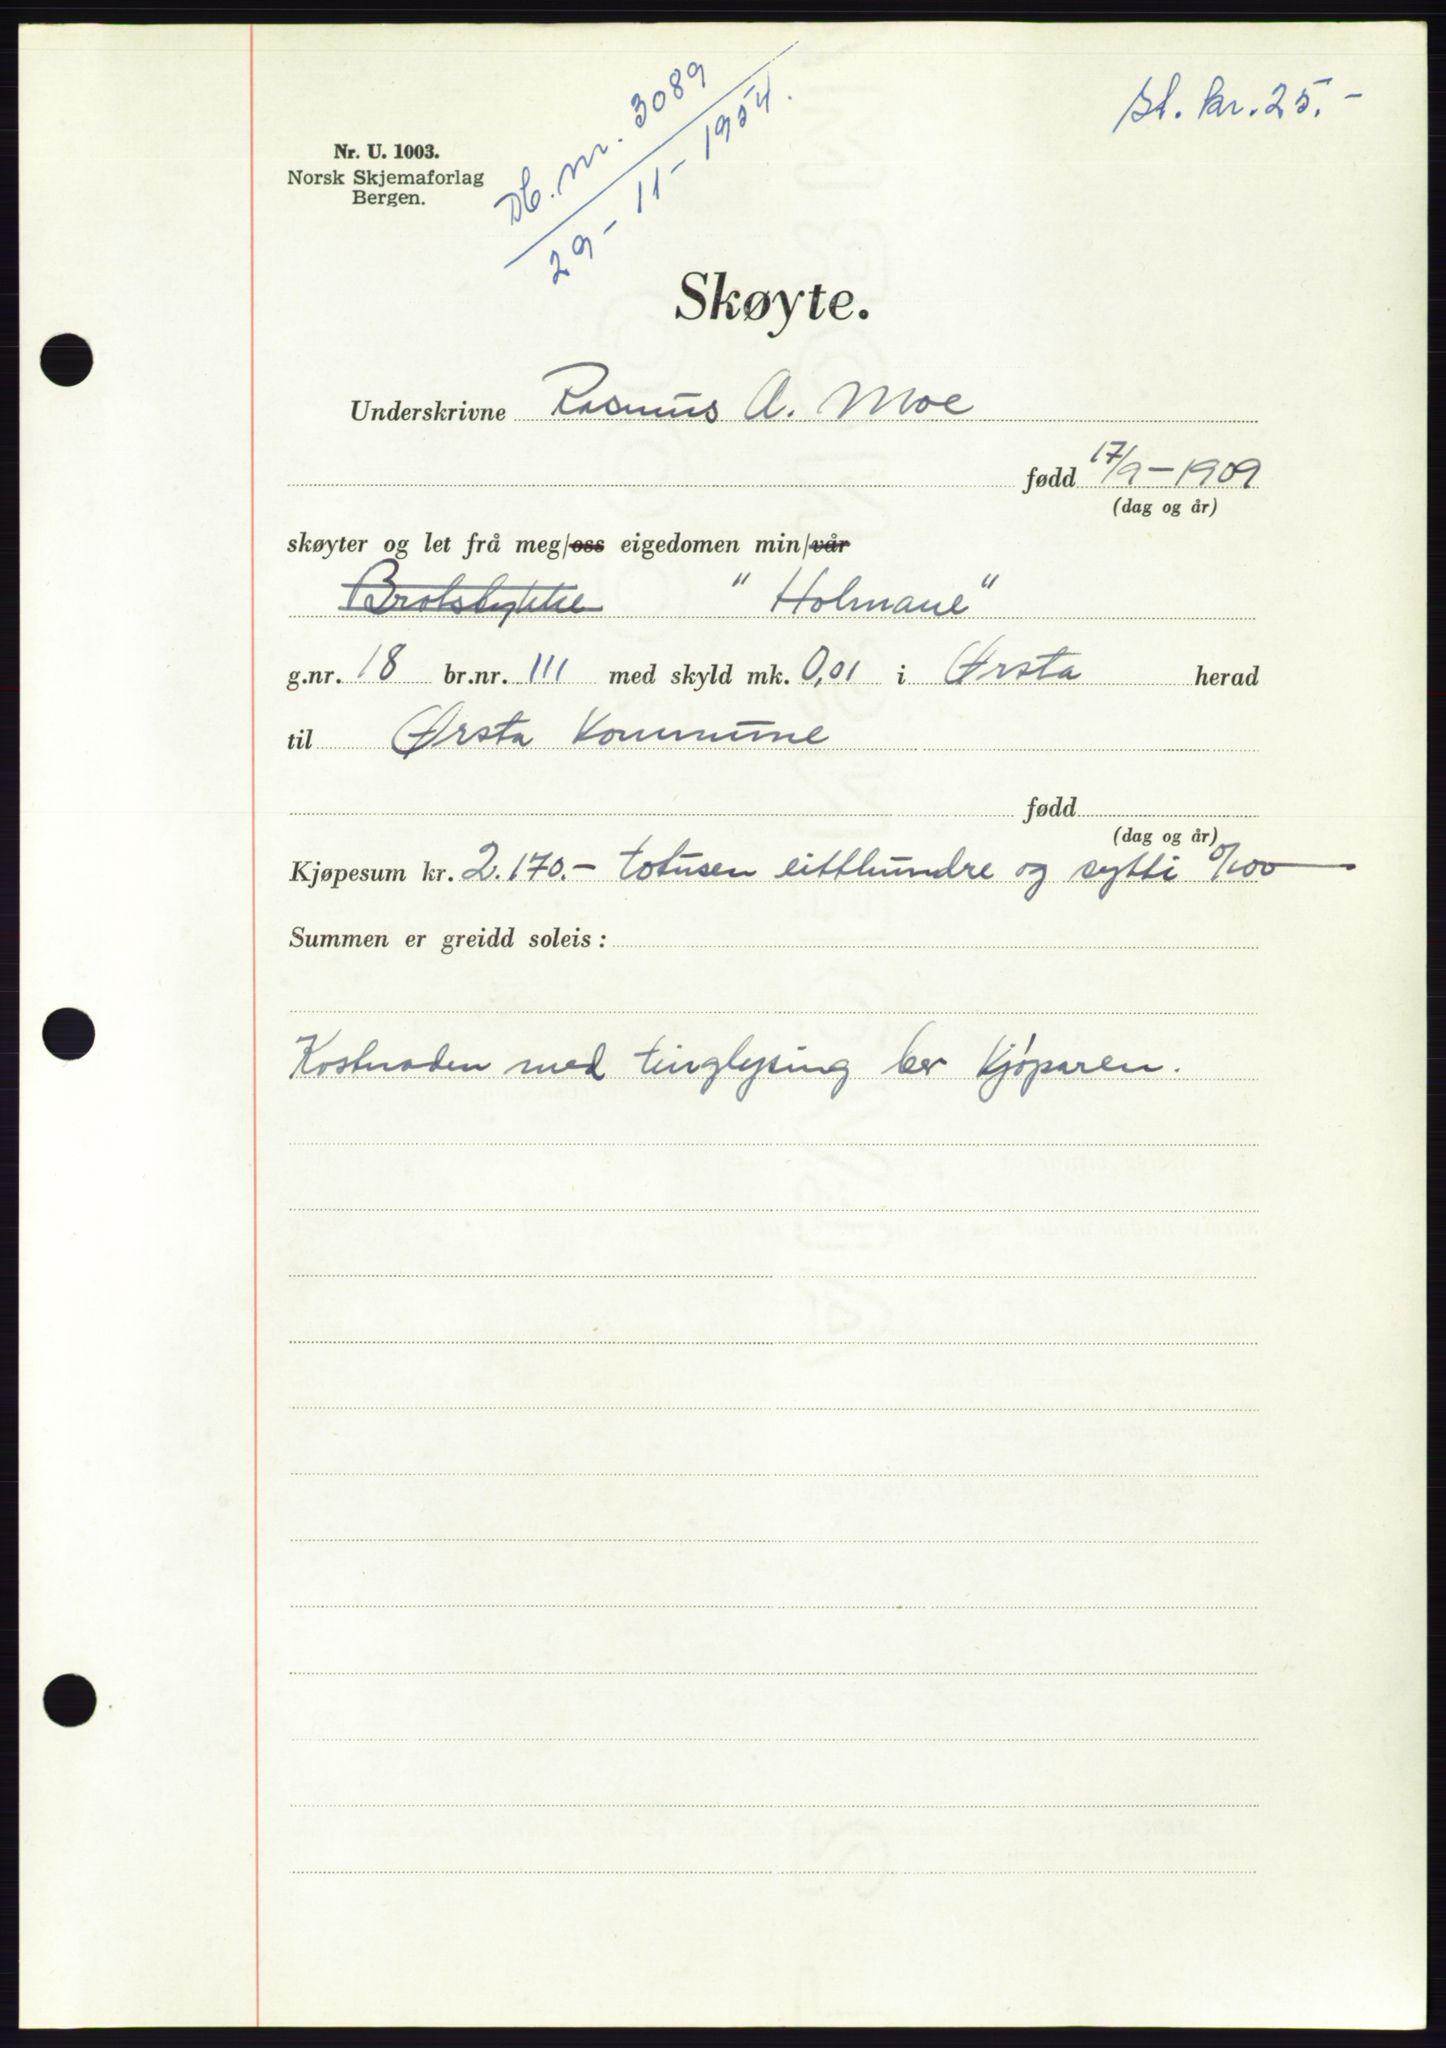 St. kr. 25.-
Db. nr. 3089
29-11-1954.
Nr. U. 1003.
Norsk Skjemaforlag
Bergen.
Skøyte.
Underskrivne Rasmus A. Moe
fødd 17/9-1909
(dag og år)
skøyter og let frå meg/oss eigedomen min/vår
Brotstykke "Holmane"
g.nr. 18 br.nr. 111 med skyld mk. 0,01 i Ørsta herad
til Ørsta Kommune
fødd
(dag og år)
Kjøpesum kr. 2.170.- totusen eitthundre og sytti 0/100
Summen er greidd soleis:
Kostnaden med tinglysing ber kjøparen.